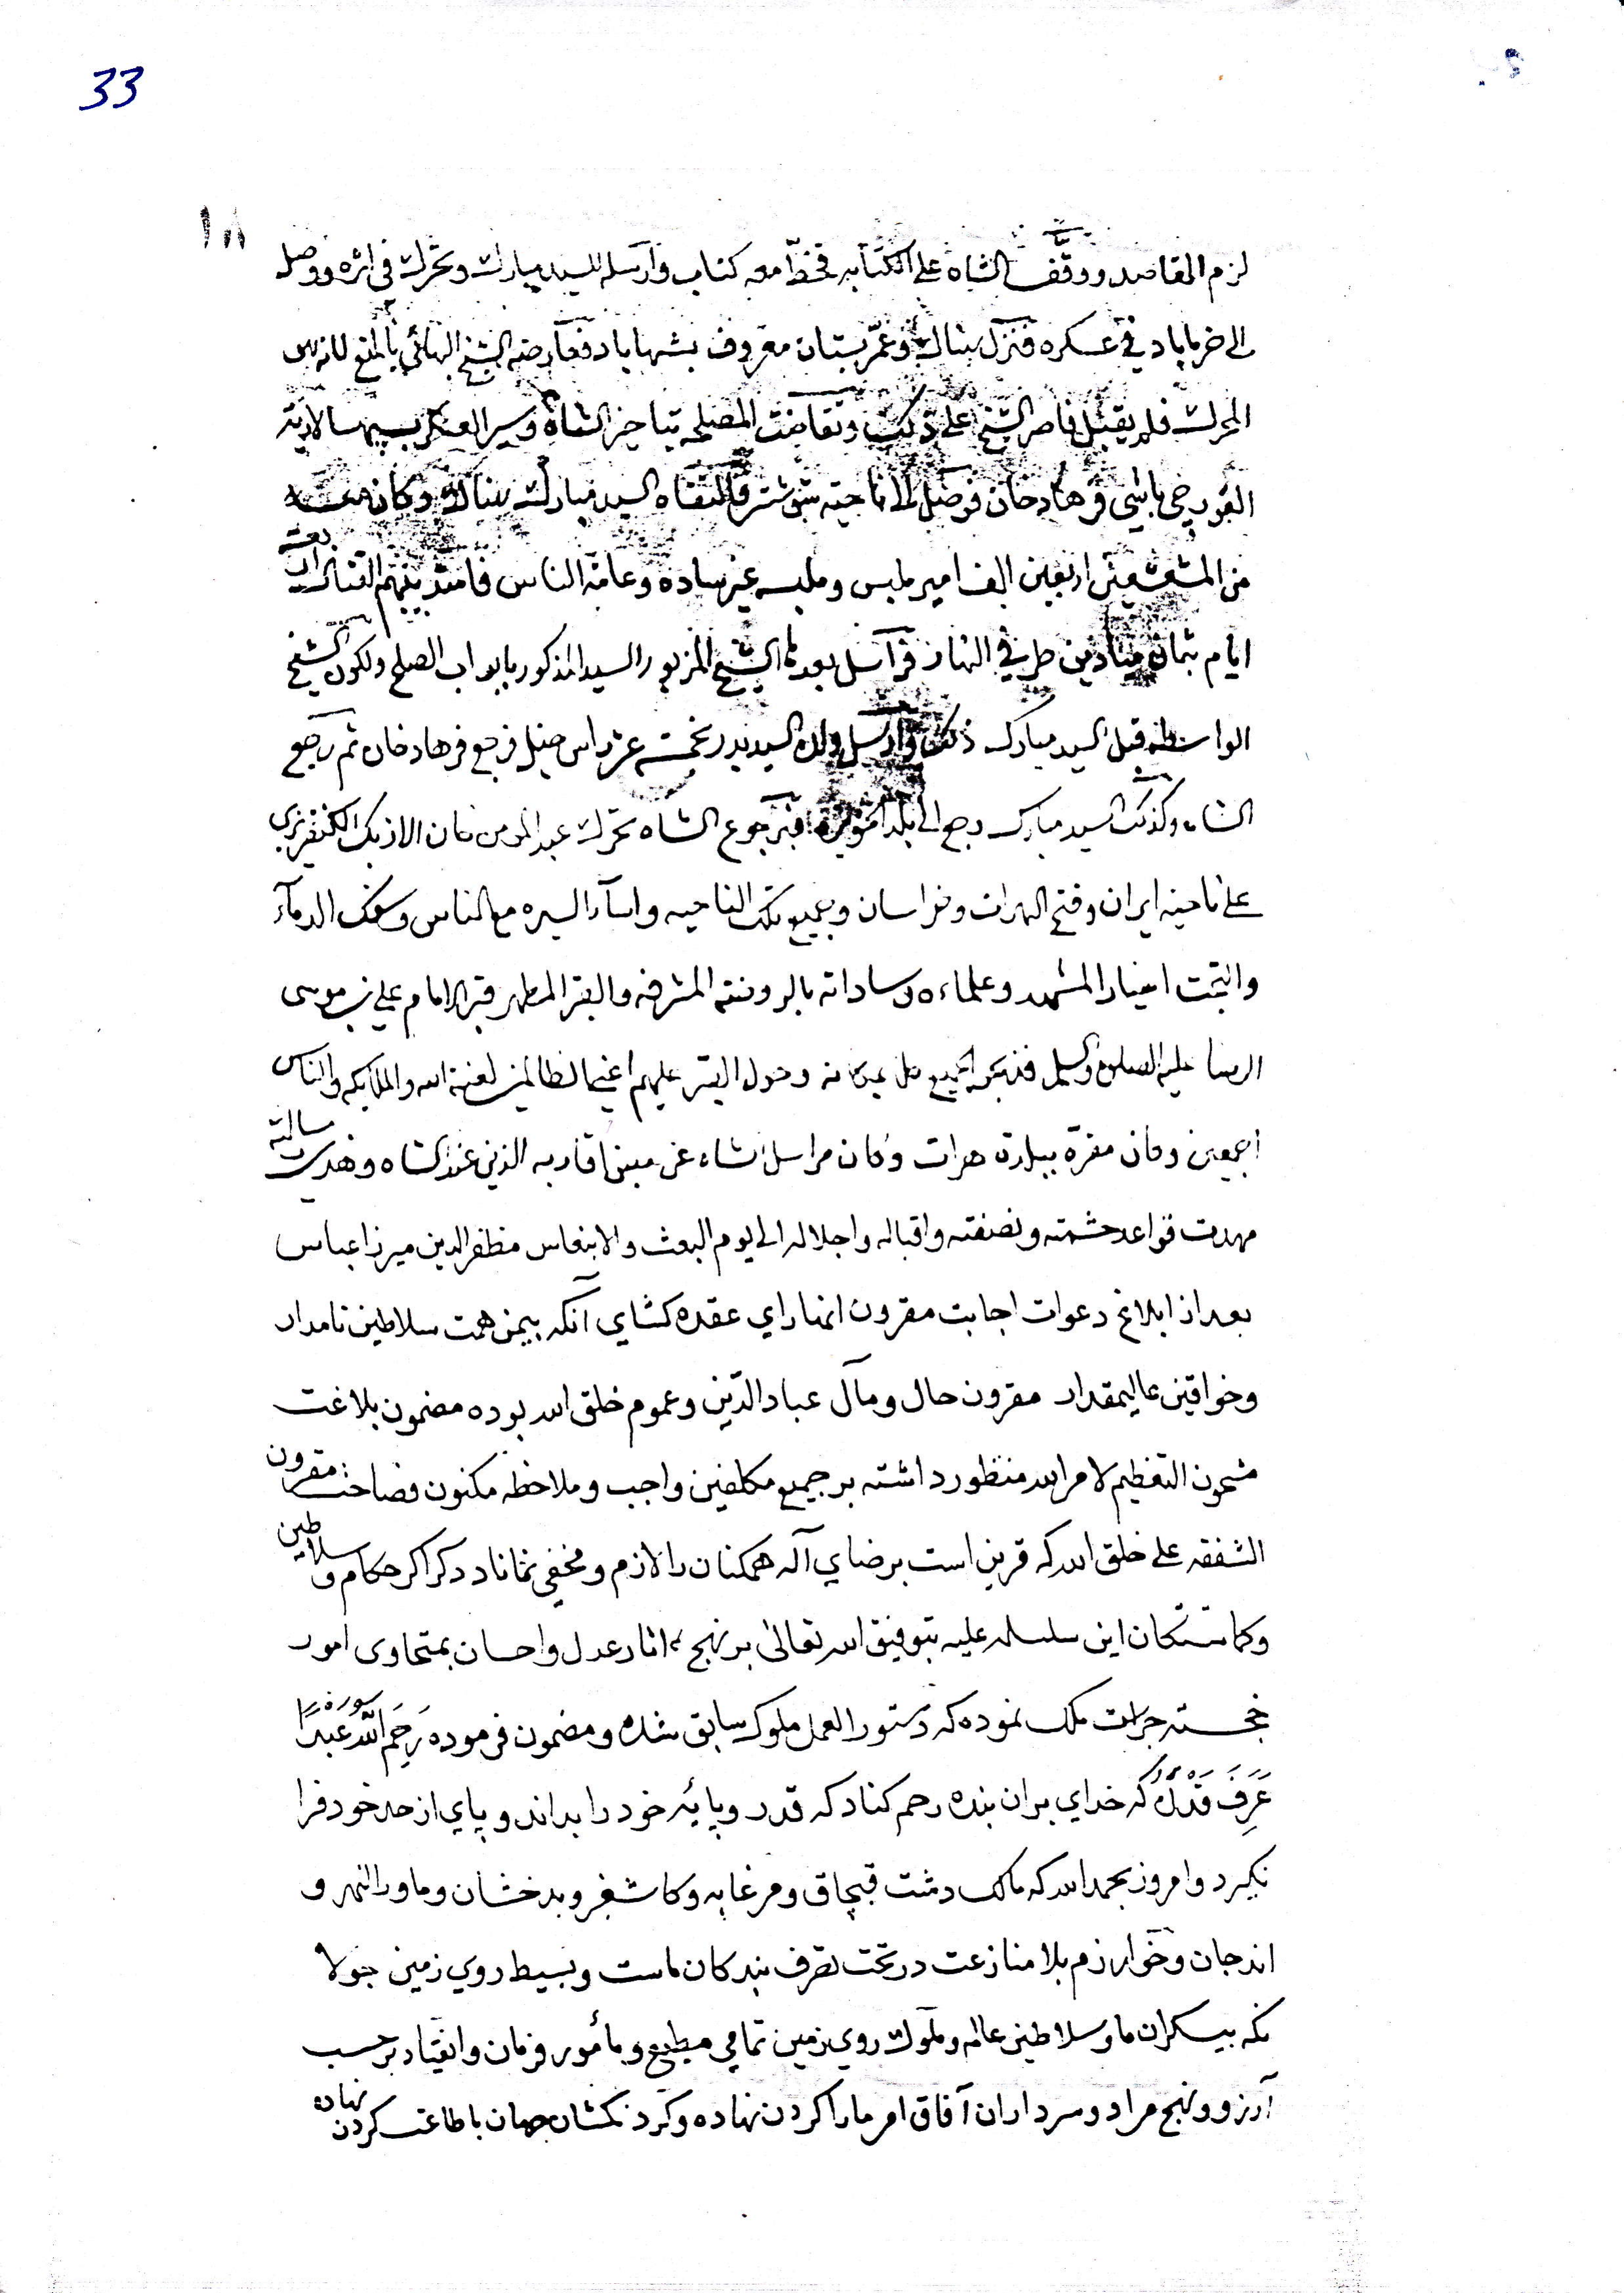 33
١٨
لزم المقاصد ووقف الشاه على الكتابه فخط معه كتاب وارسله للسيد مبارك وتحرك في اثره ووصل
الى خرماباد في عسكره فنزل بناك وعمر بستان معروف بشهاباد فعارضه الشيخ البهائي بالمنع
فلم يقبل فاصر الشيخ على ذلك وتقاضت المصلحه بتاخير الشاه وسير العسكر بسپهسالارية
القورچي باشي فرهادخان فوصل الى ناحيته شوشتر فالتقاه السيد مبارك بناك وكان معه
من المشعشعين اربعين الف امير ملبس وملبسه غير ساده وعامة الناس فامتد بينهم القتال اربعة
ايام بثمان ميادين طرفي النهار فراسل بعدها الشيخ المزبور السيد المذكور بابواب الصلح ولكون الشيخ
الواسطه قبل السيد مبارك ذلك وارسل ولده السيد بدر بخمسة عشر راس خيل فرجع فرهادخان ثم رجع
الشاه وكذلك السيد مبارك رجع الى بلد الحويزه فبرجوع الشاه تحرك عبد المومن خان الازبك
على ناحية ايران وفتح الهرات وخراسان وجميع تلك الناحيه واساء السيره مع الناس وسفك الدماء
والتجت اخيار المشهد وعلماءه وساداته بالروضة المشرفه والقبر المطهر قبر الامام علي بن موسى
الرضا عليه الصلوة والسلم فذبحو الجميع وحول القبر عليهم اعني الظالمين لعنة الله والملايكه والناس
اجمعين وكان مقره ببلدة هرات وكان مراسل الشاه عن اقاربه الذين عند الشاه وهذه رسالته
مهدت قواعد حشمته ونصفته واقباله واجلاله الى يوم البعث والانبعاس مظفر الدين ميرزا عباس
بعد از ابلاغ دعوات اجابت مقرون انهاراي عقده كشاي آنكه بيمن همت سلاطين نامدار
وخواقين عاليمقدار مقرون حال ومآل عباد الدين وعموم خلق الله بوده مضمون بلاغت
مشحون التعظيم لامر الله منظور داشته بر جميع مكلفين واجب وملاحظه مكنون فصاحت مقرون
الشفقه على خلق الله كه قرين است برضاي آله همكنان را لازم ومخفي نماناد دكر اكر حكام وسلاطين
وكماشتكان اين سلسله عليه بتوفيق الله تعالى بر نهج اثار عدل واحسان امور
خجسته ملك نموده كه دستور العمل ملوك سابق شده ومضمون فرموده سوره رَحِمَ اللهُ عَبدًا
عَرِفَ قَدْرَهُ كه خداي بران بنده رحم كناد كه قدر وپايه خود را بداند و پاي از حد خود فرا
نكيرد وامروز بحمد الله كه مالك دشت قبچاق ومرغابه وكاشغر وبدخشان وماورالنهر و
اندجان وخوارزم بلا منازعت در تحت تصرف بندكان ماست وبسيط روي زمين جولا
نكه بيكران ما وسلاطين عالم وملوك روي زمين تمامي مطيع ومأمور فرمان وانقياد بر حسب
آرزو ونهج مراد وسرداران آفاق امر ما را كردن نهاده وكردنكشان جهان باطاعت كردن نهاده